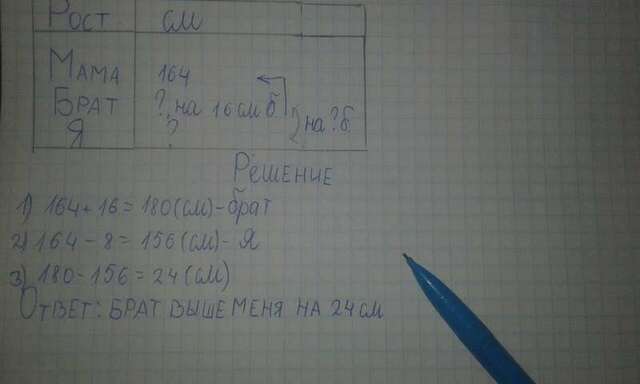 Рост см
Мама 164
Брат ?, на 16 см б.
Я ?
на ? б.
Решение
1) 164 + 16 = 180 (см) - брат
2) 164 - 8 = 156 (см) - Я
3) 180 - 156 = 24 (см)
Ответ: БРАТ ВЫШЕ МЕНЯ НА 24 см